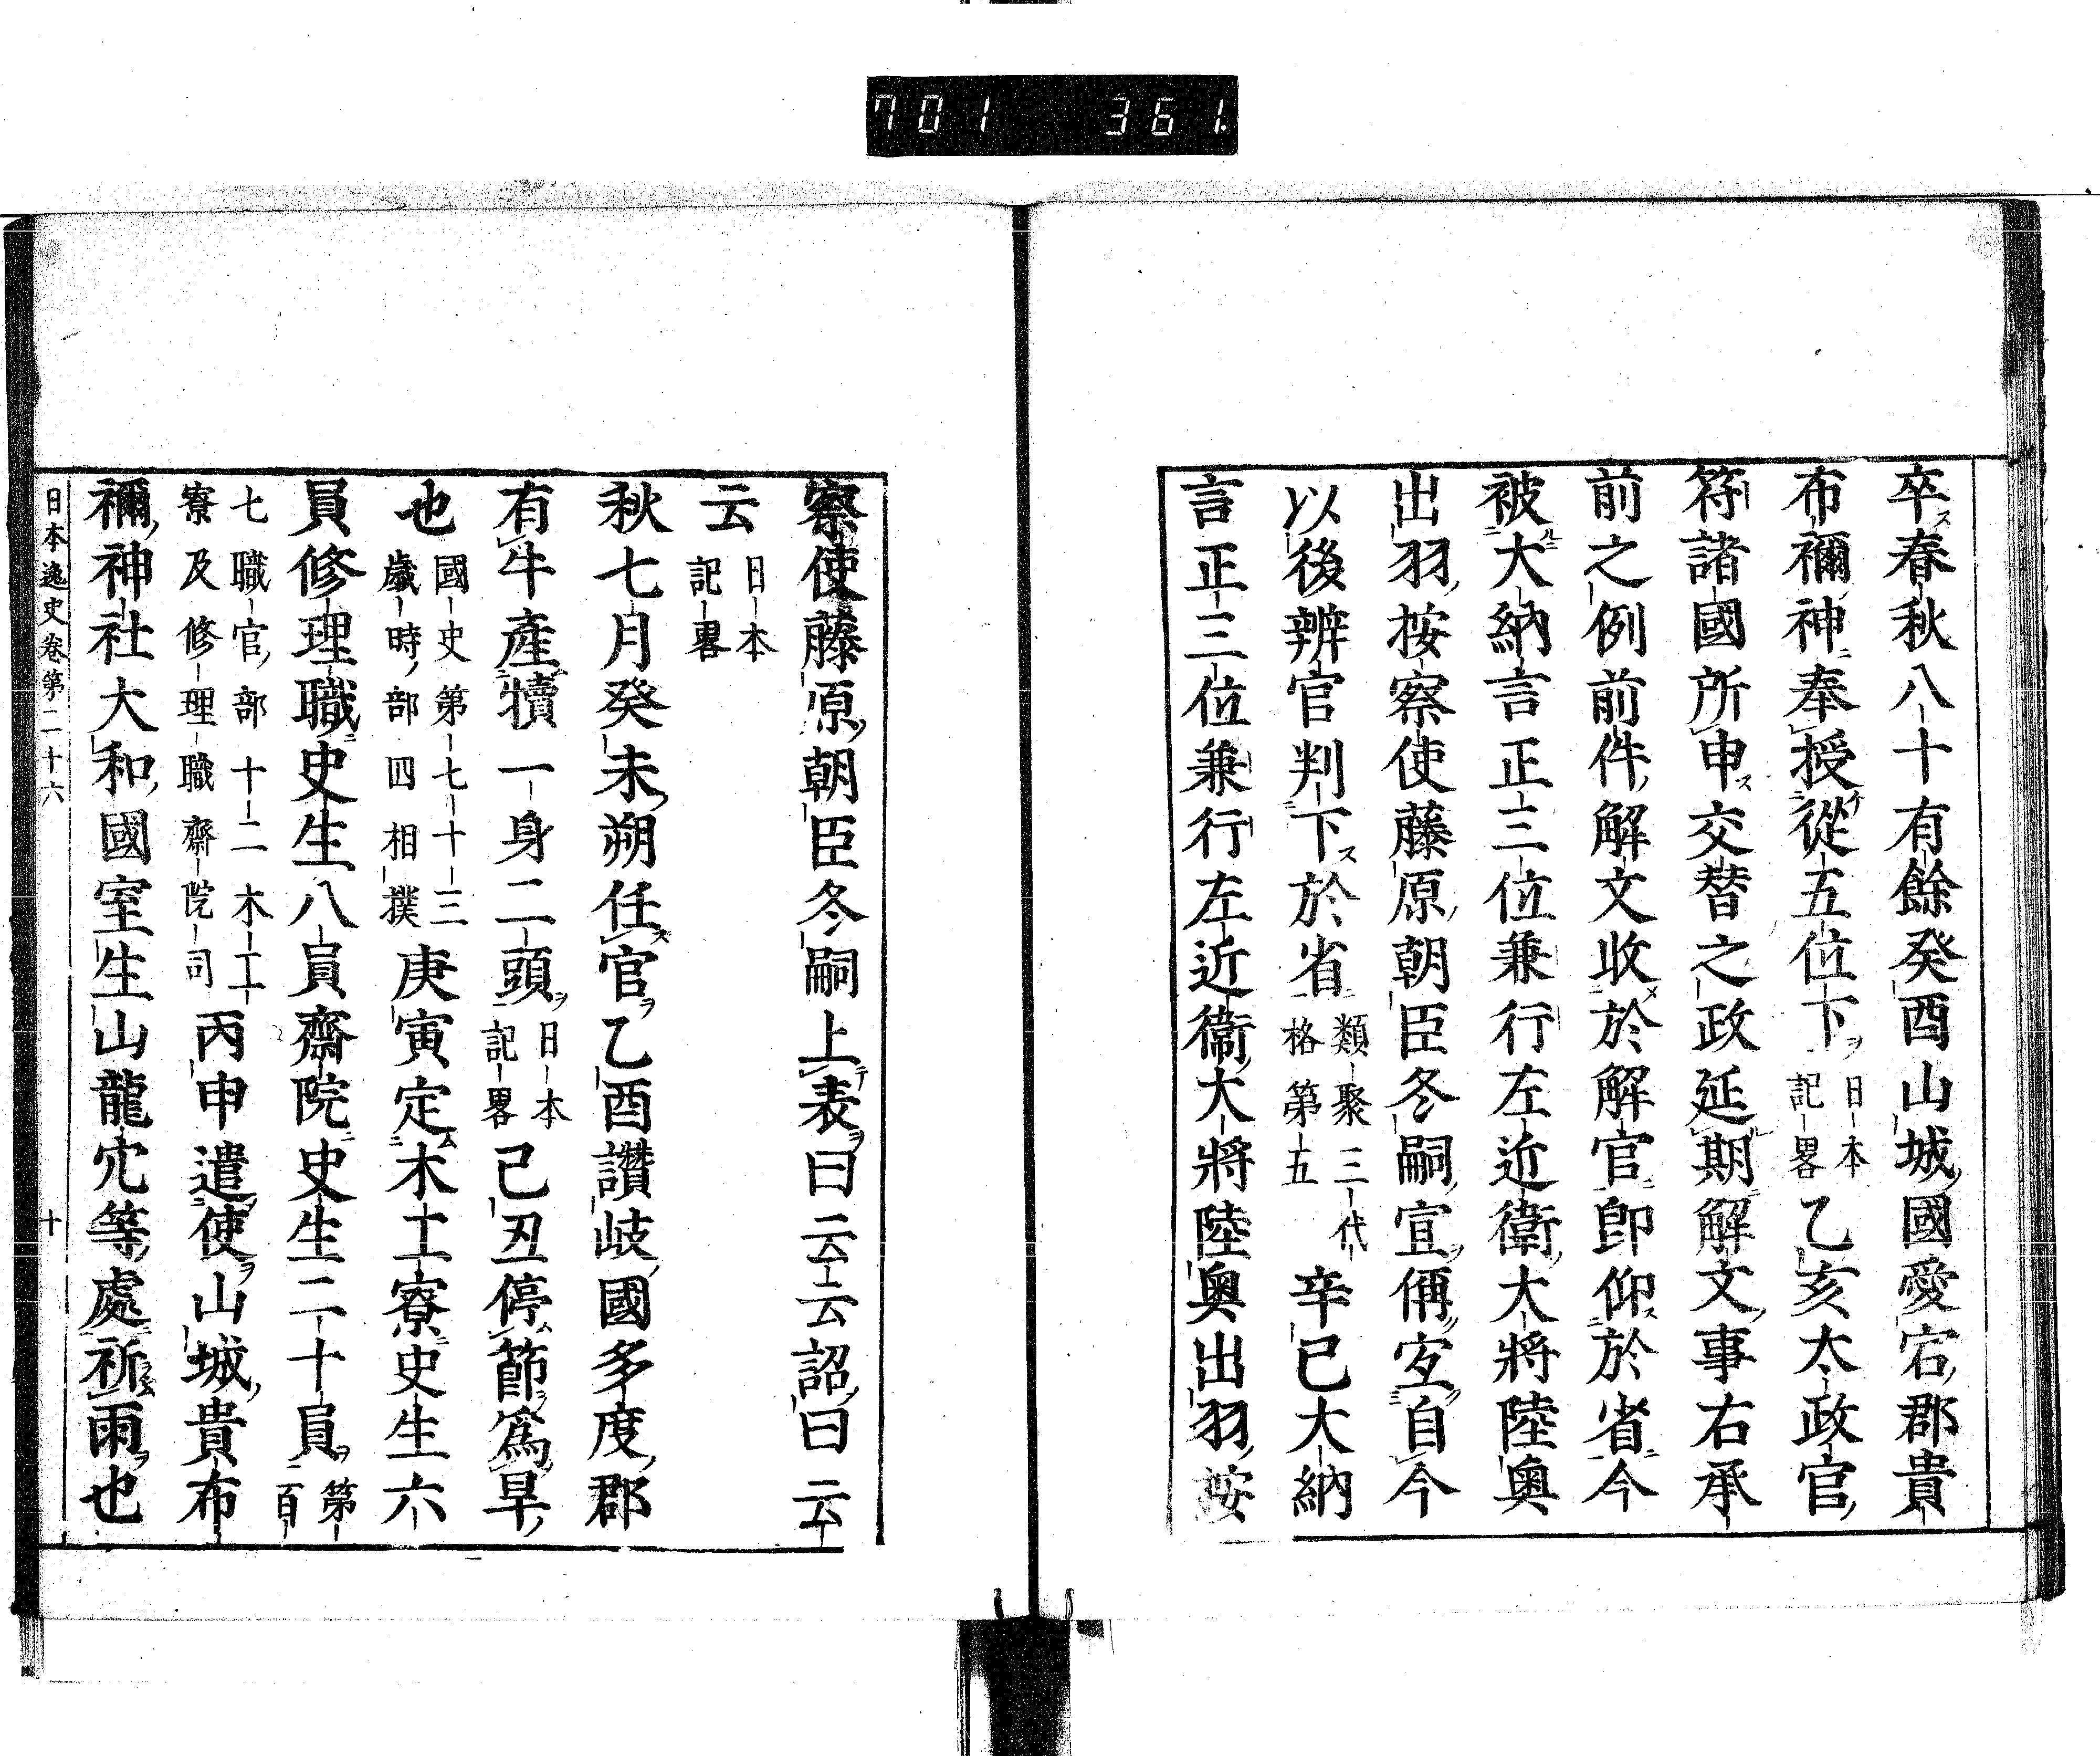 701 361
卒春秋八十有餘癸酉山城國愛宕郡貴
布禰神奉授從五位下日本記畧乙亥太政官
符諸國所申交替之政延期解文事右承
前之例前件解文收於解官即仰於省今
被大納言正三位兼行左近衛大將陸奥
出羽按察使藤原朝臣冬嗣宣偁宐自今
以後辨官判下於省類聚三代格第五辛巳大納
言正三位兼行左近衞大將陸奥出羽按
察使藤原朝臣冬嗣上表曰云云詔曰云
云日本記畧
秋七月癸未朔任官乙酉讃岐國多度郡
有牛產犢一身二頭日本記畧己丑停節爲旱
也國史第七十三歲時部四相撲庚寅定木工寮史生六
員修理職史生八員齋院史生二十員第百
七職官部十二木工寮及修理職齋院司丙申遣使山城貴布
禰神社大和國室生山龍穴等處祈雨也
日本逸史卷第二十六 十